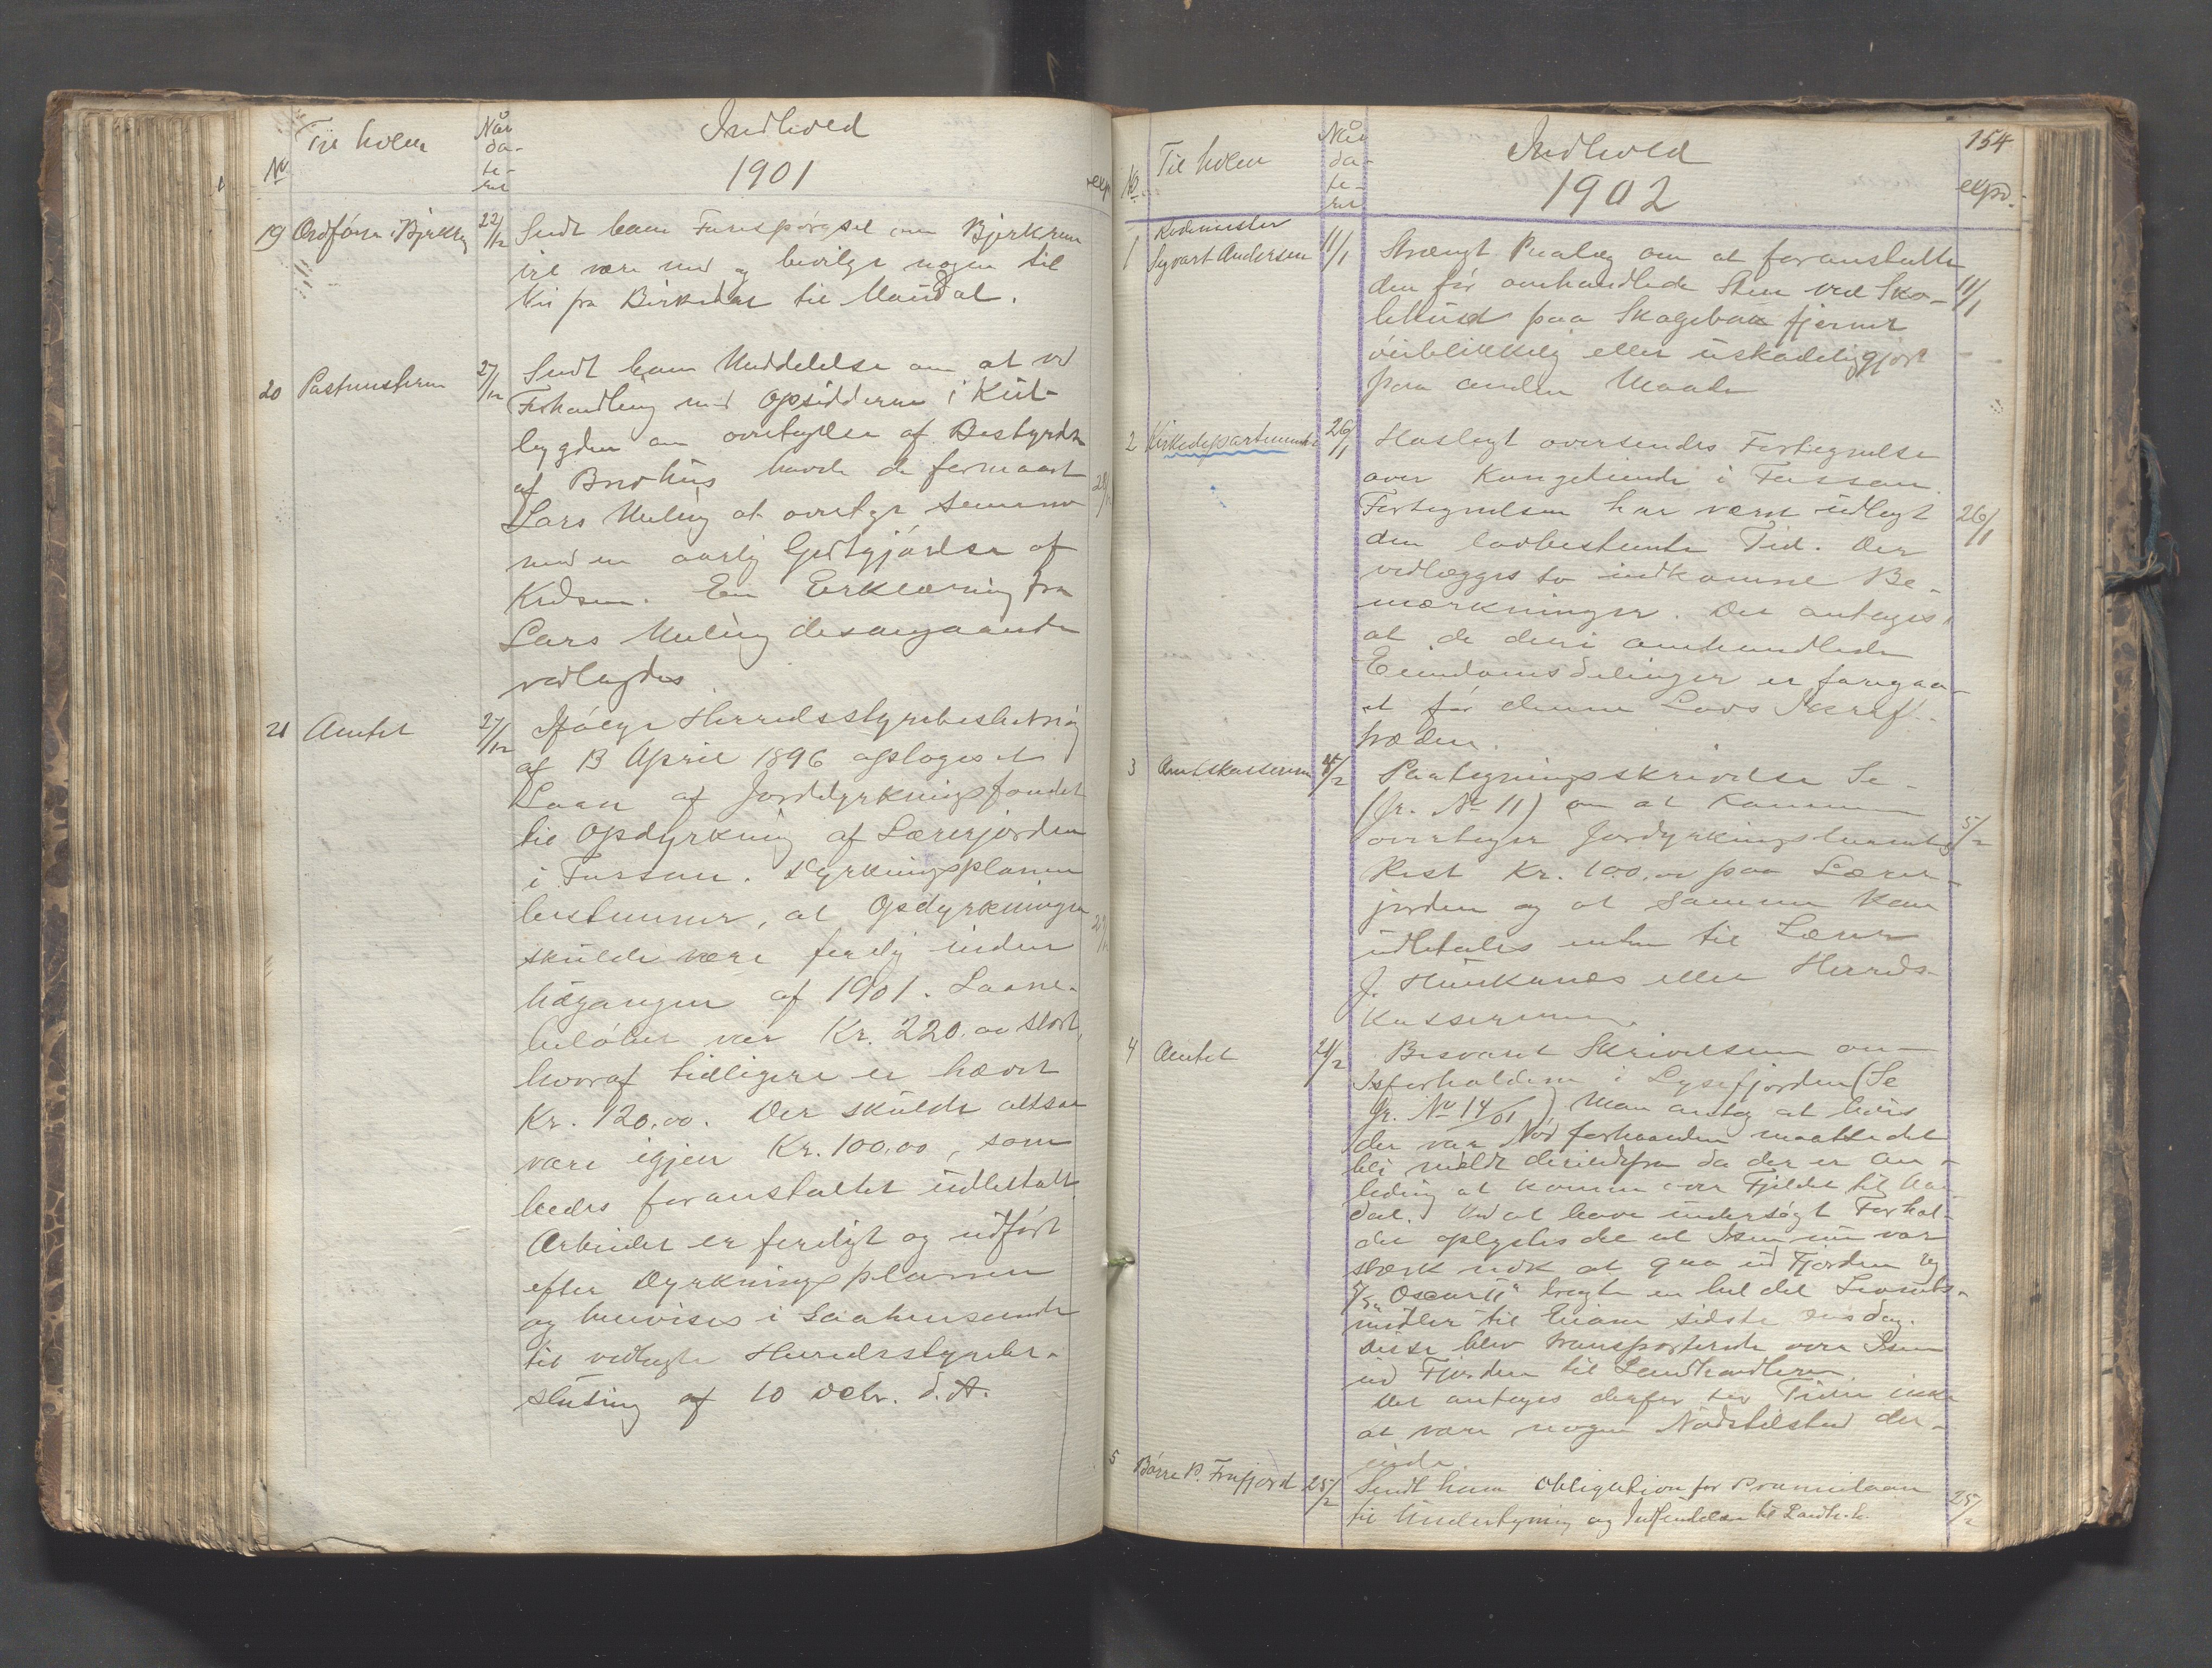 No
Til hvem
Når
da-
te-
ret
Indhold
1901
exp.
19 Ordfører i Bjerkr. 22/12 Sendt ham Forespørgsel om Bjerkrem
vil være med og bevilge nogen til
Vei fra Birkedal til Maudal.
20 Postmesteren 27/12 Sendt ham Meddelelse om at ved
Forhandling med Opsidderne i
bygden om overtagelse af Bestyrelse
af Brevhus havde de formaaet
Lars Meling at overtage samme
mod en aarlig Godtgjørelse af
Kredsen. En Erklæring fra
Lars Meling desangaaende
vedlagdes
21 Amtet 27/12 Ifølge Herredsstyrebeslutning
af 13 April 1896 optoges et
Laan af Jorddyrkningsfondet
til Opdyrkning af Lærerjorden
i Fossan. Dyrkningsplanen
bestemmer, at Opdyrkningen
skulde være ferdig inden
Udgangen af 1901. Laane-
beløbet var Kr. 220.00 stort,
hvoraf tidligere er hævet
Kr. 120,00. Der skulde altsaa
være igjen Kr. 100,00, som
bedes foranstaltet udbetalt
Arbeidet er ferdigt og udført
efter Dyrkningsplanen
og henvises i Saahenseende
til vedlagte Herredsstyrebe-
slutning af 10 Dcbr. d. A.
154
No.
Til hvem
Når
da-
te-
ret
Indhold
1902
expd.
1 Rodemester
Sigvart Andersen 11/1 Strængt Paalæg om at foranstalte
den før omhandlede Sten ved Sko- 11/1
lehuset paa Skogebak fjernet
øieblikkelig eller uskadeliggjort
paa anden Maade
2 Kirkedepartementet 26/1 Hoslagt oversendes Fortegnelse
over Kongetiende i Fossan.
Fortegnelsen har været udlagt 26/1
den lovbestemte Tid. Der
vedlægges to indkomne Be-
mærkninger. Det antages,
at de deri omhandlede
Eiendomsdelinger er foregaa-
et før denne Lovs Ikraft-
træden.
3 Amtskassereren 4/2 Paategningsskrivelse Se
(Jr. No 11) om at Kommunen
overtager Jorddyrkningslaanets 5/2
Rest Kr. 100,00 paa Lærer-
jorden og at samme kan
udbetales enten til Lærer
J. eller Herreds-
kassereren.
4 Amtet 21/2 Besvaret Skrivelsen om
Isforholdene i Lysefjorden (Se
Jr. No 14/01) Man antog at hvis
der var Nød forhaanden maatte det
bli meldt derindefra da der er An-
ledning at komme over Fjeldet til
dal. Ved at have undersøgt Forhol-
det oplystes det at Isen nu var
stærk nok at gaa ud Fjorden og
D/S "Oscar II" bragte en hel del Levnets-
midler til Eiane sidste
Disse blev transporterede over Isen
ind Fjorden til Landhandleren
Det antages derfor for Tiden ikke
at være nogen Nødstilstand der-
inde.
5 Børre P. Frafjord 25/2 Sendt ham Obligation for Præmielaan 25/2
til Undertegning og Indsendelse til